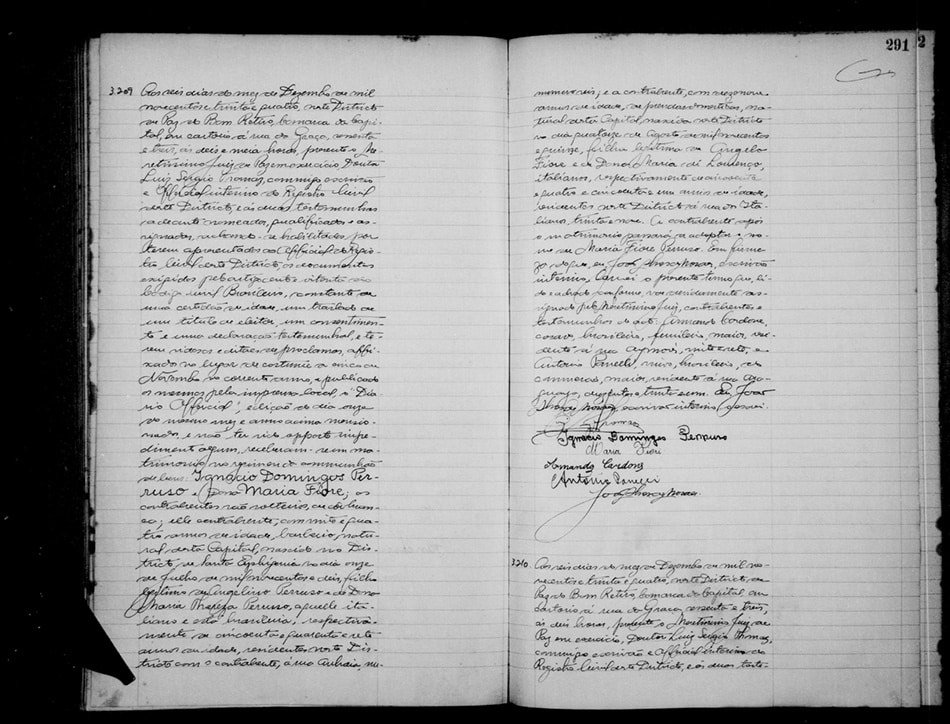 3.209 Aos seis dias do mez de Dezembro de mil
novecentos e trinta e quatro, neste Districto
de Paz do Bom Retiro, comarca da Capi-
tal, em cartorio, á rua da Graça, sessenta
e tres, ás deis e meia horas, presente o Me-
retissimo Juiz de Paz em exercicio Doutor
Luiz Sergio Thomaz, commigo escrivão
e Official interino do Registro Civil
deste Districto, e as duas testemunhas
adeante nomeadas, qualificadas e as-
signadas, achando-se habilitados por
terem apresentados ao Official do Regis-
tro Civil deste Districto, os documentos
exigidos pelo artigo cento e oitenta do
Codigo Civil Brasileiro, constante de
uma certidão de idade, um traslado de
um titulo de eleitor, um consentimen-
to e uma declaração testemunhal, e te-
rem sidos os editaes de proclamas, affi-
xados no lugar de costume a cinco de
Novembro do corrente anno, e publicado
os mesmos pela imprensa local, o "Dia-
rio Official", edição do dia onze
do mesmo mez e anno acima mencio-
nado, e não ter sido opposto impe-
dimento algum, receberam-se em ma-
trimonio no regimen de communhão
de bens: Ignacio Domingos Per-
ruso e Dona Maria Fiore; os
contrahentes são solteiros, cor branca
elle contrahente, com vinte e qua-
tro annos de idade, barbeiro, natu-
ral desta Capital, nascido no Dis-
tricto de Santa Ephigenia no dia onze
de Julho de mil novecentos e deis, filho
legitimo de Angelino Perruso e de Dona
Maria Thereza Peruso, aquelle ita-
liano e esta brasileira, respectiva-
mente de cincoenta e quarenta e sete
annos de idade, residentes neste Dis-
tricto com o contrahente, á rua nu-
291
2
mero seis; e a contrahente, com dezenove
annos de idade, de prendas domesticas, na-
tural desta Capital, nascida neste Districto
no dia quatorze de Agosto de mil novecentos
e quinze, filha legitima de Angelo
Fiore e de Dona Maria di Lourenço,
italianos, respectivamente de cincoenta
e quatro e cincoenta e um annos de idade,
residentes neste Districto á rua dos Ita-
lianos, trinta e nove. A contrahente após
o matrimonio passará a adoptar o no-
me de Maria Fiore Peruso. Em firme-
za do que, eu escrivão
interino, lavrei o presente termo que, li-
do e achado conforme, vae devidamente as-
signado pelo Meretissimo Juiz, contrahentes e
testemunhas do acto: Armando Cardone,
casado, brasileiro, maior, resi-
dente á rua Aymorés, vinte e sete, e
Antonio viuvo, brasileiro, do
commercio, maior, residente á rua Ara-
guaya, duzentos e trinta e um. Eu
escrivão interino escrevi.
Thomaz
Ignacio Domingos Perruso
Maria Fiori
Armando Cardone
Antonio
3.210 Aos seis dias do mez de Dezembro de mil no-
vecentos e trinta e quatro, neste Districto, de
Paz do Bom Retiro, comarca da Capital, em
cartorio á rua da Graça, sessenta e tres,
ás deis horas, presente o Meretissimo Juiz de
Paz em exercicio, Doutor Luiz Sergio Thomaz,
commigo escrivão e Official interino do
Registro Civil deste Districto, e as duas teste-